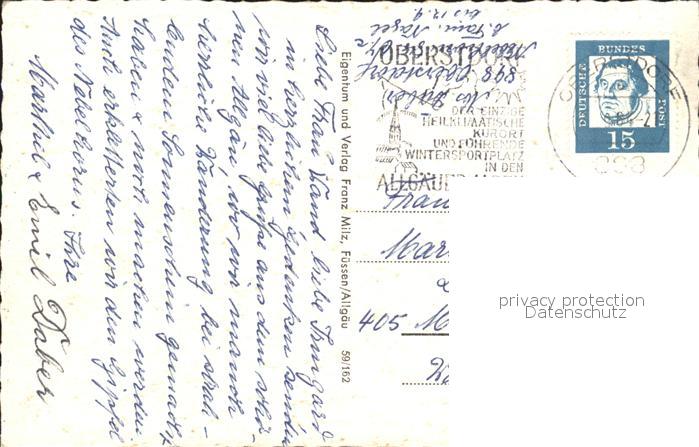 Liebe Frau Wand, liebe Irmgard
in herzlichem Gedenken senden
wir viel liebe Grüße aus dem schö-
nen Allgäu wo wir manch
herrliche Wanderung bei strah-
lendem Sonnenschein gemacht
haben & noch machen werden.
Auch erkletterten wir den Gipfel
des Nebelhorns. Ihre
Marthel & Emil Daber
Eigentum und Verlag Franz Milz, Füssen/Allgäu 59/162
898 Oberstdorf
OBERSTDORF
DER EINZIGE
HEILKLIMATISCHE
KURORT
UND FÜHRENDE
WINTERSPORTPLATZ
IN DEN
ALLGÄUER ALPEN
OBERSTDORF
898
DEUTSCHE
BUNDES
POST
15
Frau
405 M
privacy protection
Datenschutz